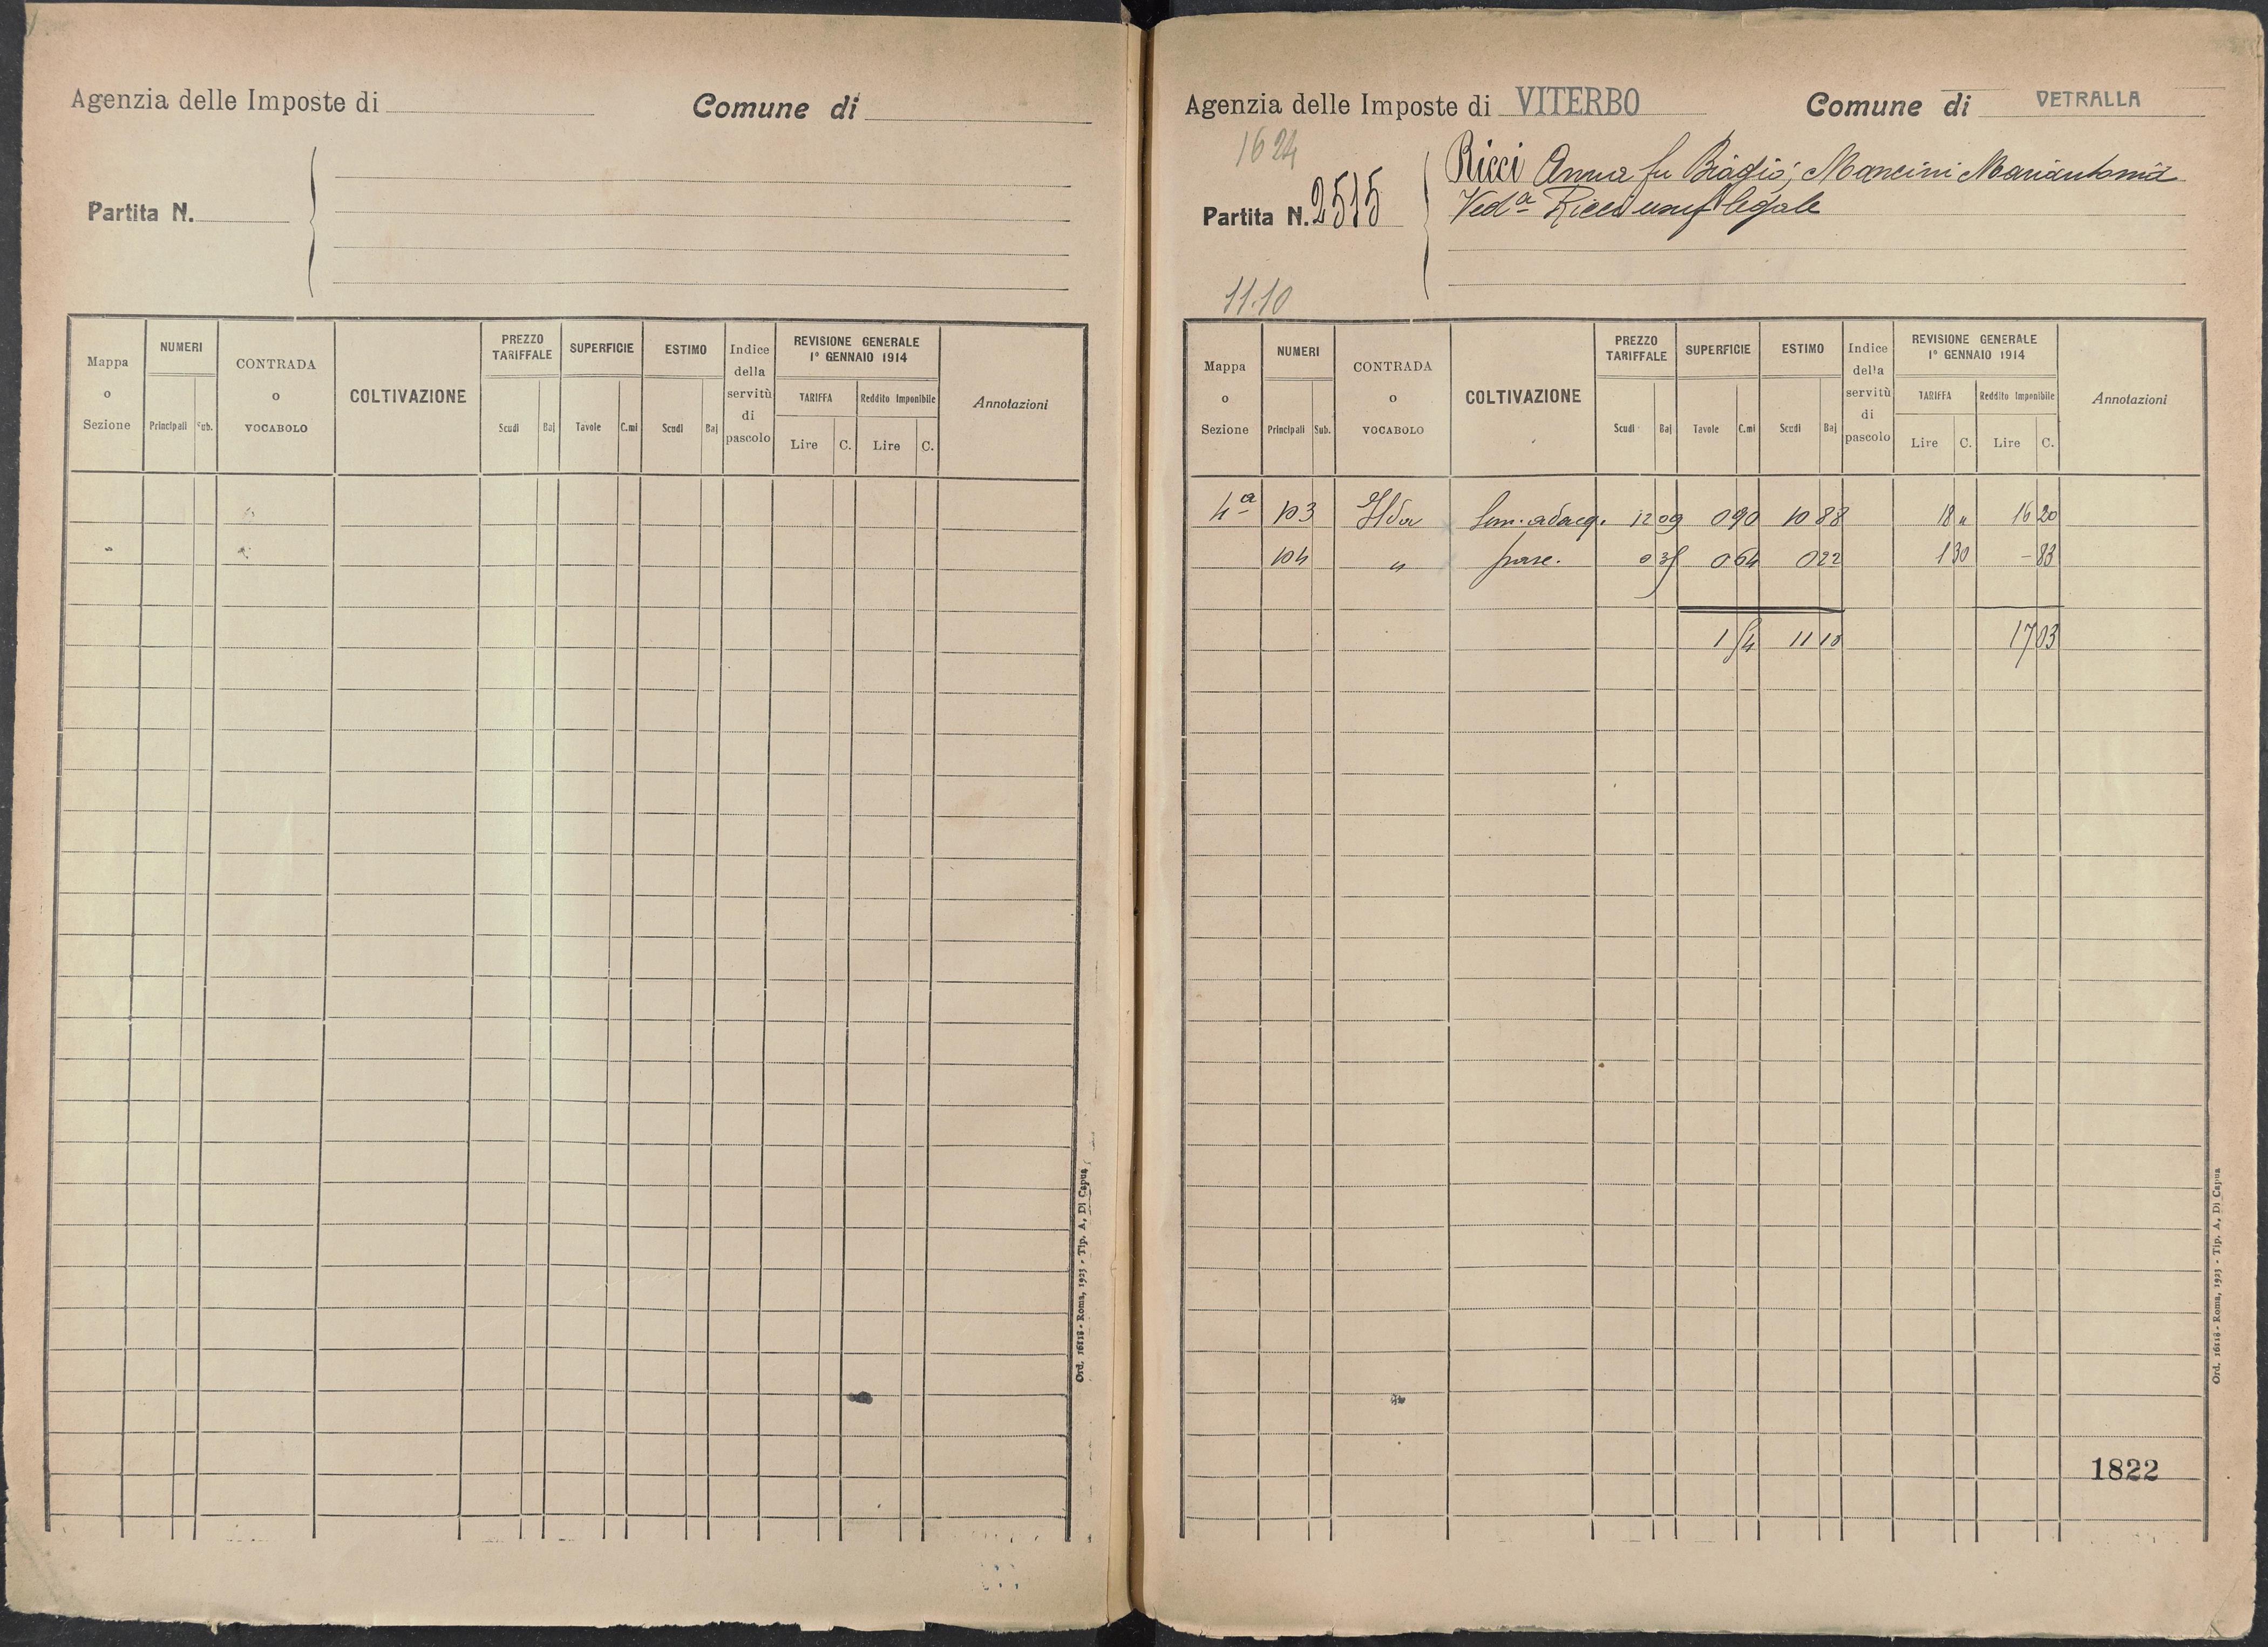 Agenzia delle Imposte di
Comune di
Partita N.
Mappa o Sezione
NUMERI
Principali
Sub.
CONTRADA o VOCABOLO
COLTIVAZIONE
PREZZO TARIFFALE
Scudi
Baj
SUPERFICIE
Tavole
C.mi
ESTIMO
Scudi
Baj
Indice della servitù di pascolo
REVISIONE GENERALE
1° GENNAIO 1914
TARIFFA
Reddito Imponibile
Lire
C.
Lire
C.
Annotazioni
Ord. 16118 - Roma, 1923 - Tip. A. Di Capua
Agenzia delle Imposte di VITERBO
Comune di VETRALLA
1624
Partita N. 2515
Ricci Anna fu Biagio; Mancini Mariantonia
Ved.a Ricci usuf legale
11.10
Mappa o Sezione
NUMERI
Principali
Sub.
CONTRADA o VOCABOLO
COLTIVAZIONE
PREZZO TARIFFALE
Scudi
Baj
SUPERFICIE
Tavole
C.mi
ESTIMO
Scudi
Baj
Indice della servitù di pascolo
REVISIONE GENERALE
1° GENNAIO 1914
TARIFFA
Reddito Imponibile
Lire
C.
Lire
C.
Annotazioni
4a 103 Sem. adacq. 12 09 0 90 10 88 18 " 16 20
104 " pasc. 0 35 0 64 0 22 1 30 - 83
1 54 11 10 17 03
1822
Ord. 16118 - Roma, 1923 - Tip. A. Di Capua